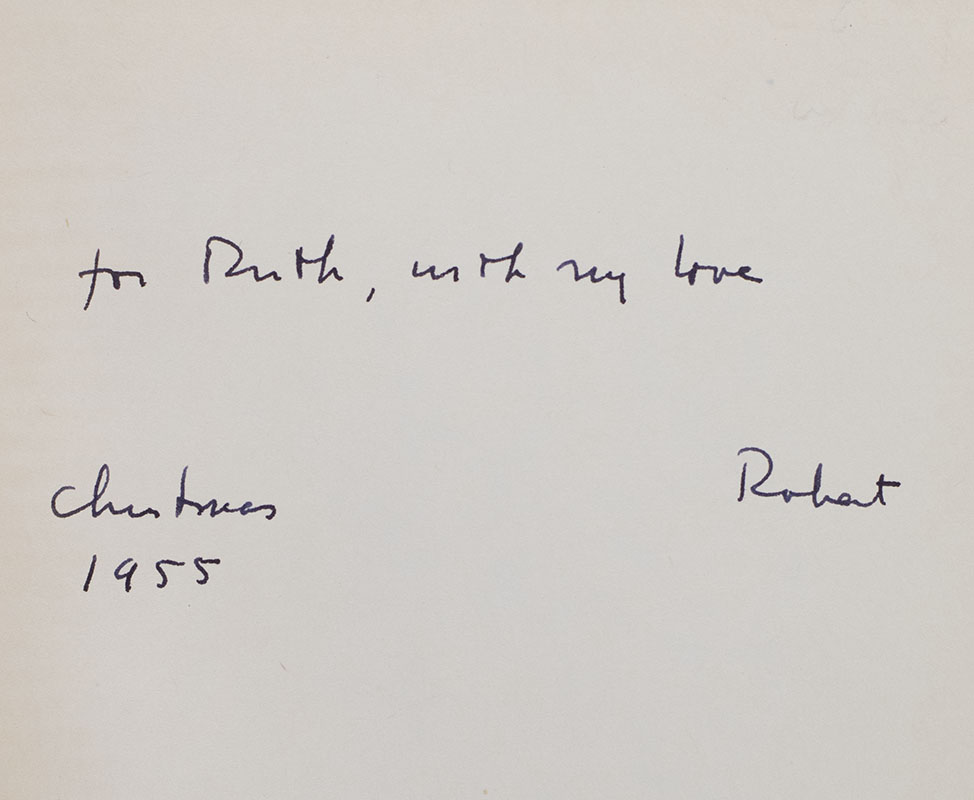 for Ruth, with my love
Robert
Christmas
1955